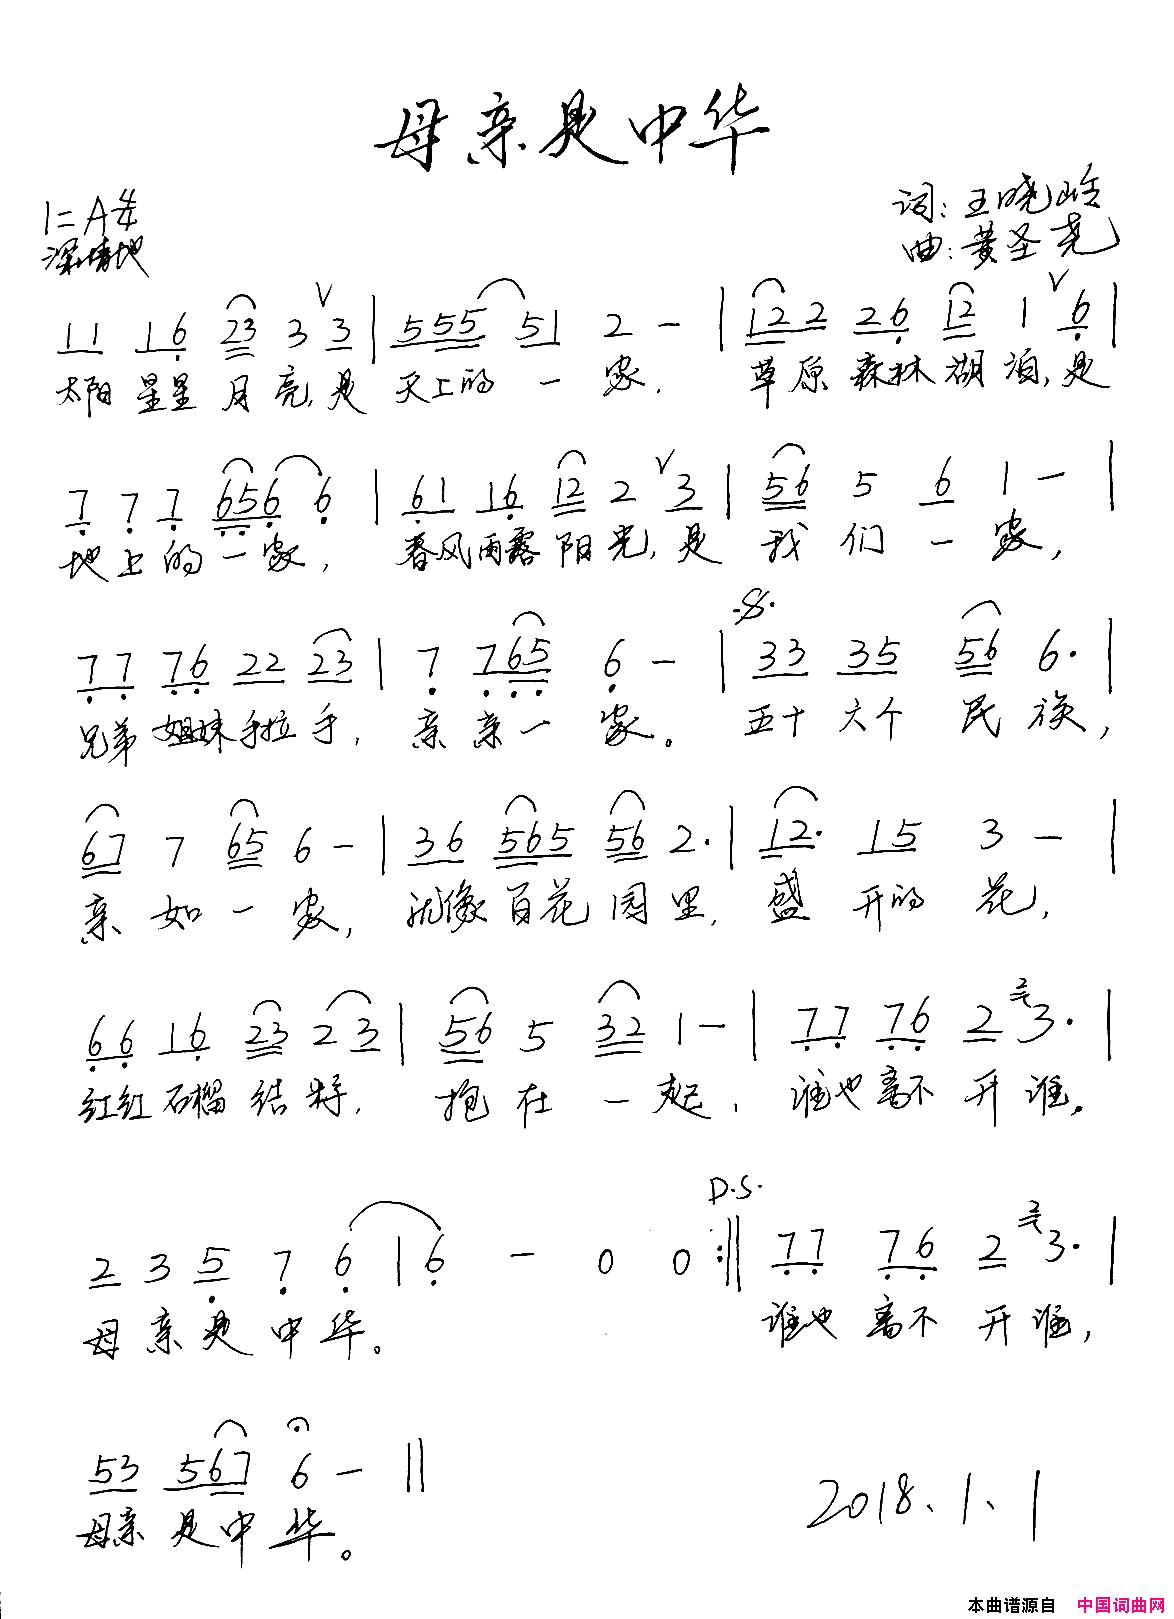 母亲是中华
1=A 4/4
词:王晓岭
深情地
曲:黄圣尧
11 16 23 3 3 | 555 51 2 - | 122 26 12 1 6 |
太阳星星月亮,是天上的一家. 草原森林湖泊,是
7 7 7 656 6 | 61 16 12 2 3 | 56 5 6 1 - |
地上的一家, 春风雨露阳光,是我们一家,
77 76 22 23 | 7 765 6 - | 33 35 56 6· |
兄弟姐妹手拉手, 亲亲一家。五十六个民族,
67 7 65 6 - | 36 565 56 2· | 12· 15 3 - |
亲如一家,就像百花园里,盛开的花,
66 16 23 2 3 | 56 5 32 1 - | 77 76 2 3· |
红红石榴结籽, 抱在一起, 谁也离不开谁。
D.S.
2 3 5 7 6 | 6 - 0 0 :‖ 77 76 2 3· |
母亲是中华。 谁也离不开谁,
53 567 6 - ‖
母亲是中华。
2018、1、1
本曲谱源自 中国词曲网